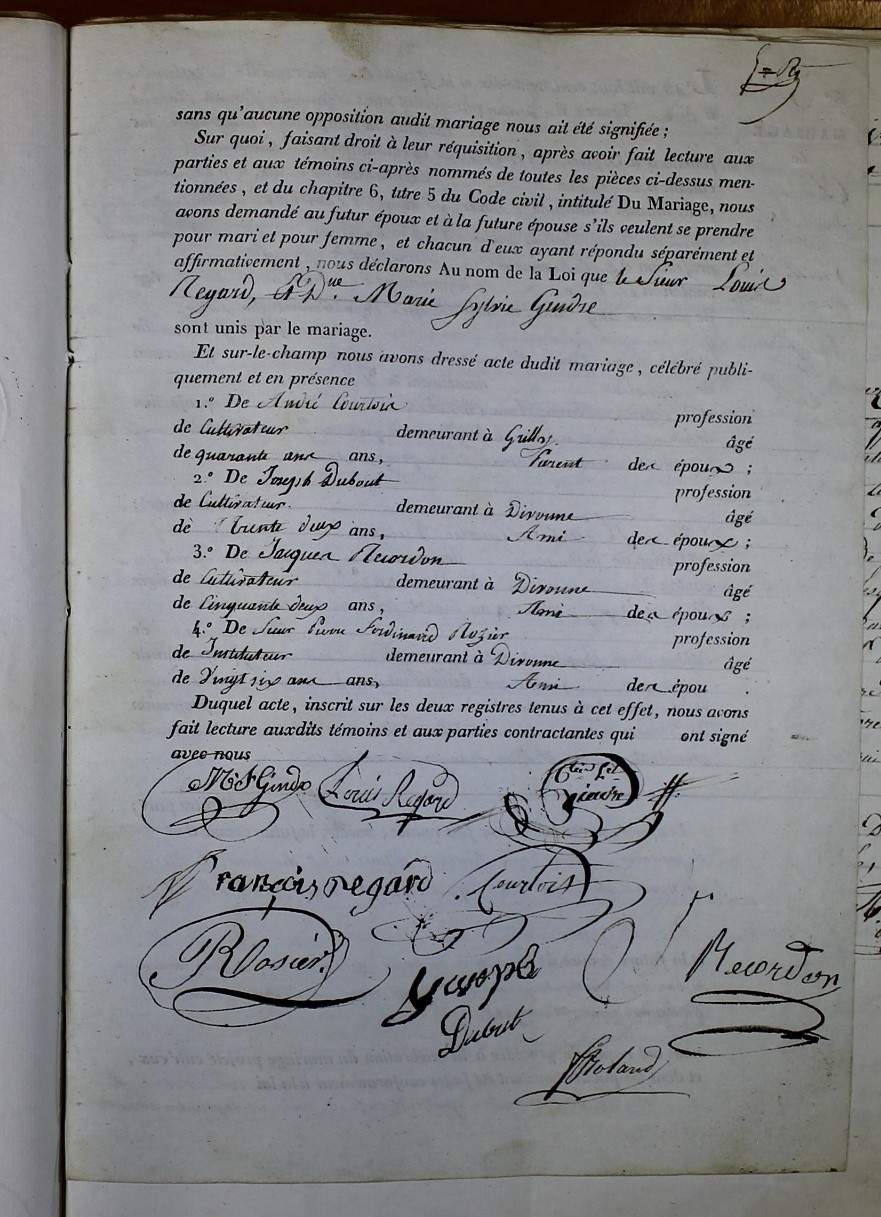 sans qu'aucune opposition audit mariage nous ait été signifiée ;
Sur quoi, faisant droit à leur réquisition, après avoir fait lecture aux
parties et aux témoins ci-après nommés de toutes les pièces ci-dessus men-
tionnées, et du chapitre 6, titre 5 du Code civil, intitulé Du Mariage, nous
avons demandé au futur époux et à la future épouse s'ils veulent se prendre
pour mari et pour femme, et chacun d'eux ayant répondu séparément et
affirmativement, nous déclarons Au nom de la Loi que le Sieur Louis
Regard, et Dlle. Marie Sylvie Gindre
sont unis par le mariage.
Et sur-le-champ nous avons dressé acte dudit mariage, célébré publi-
quement et en présence
1.º De André Courtois profession
de Cultivateur demeurant à Grilly âgé
de quarante ans ans, Parent des époux ;
2.º De Joseph Dubout profession
de Cultivateur demeurant à Divonne âgé
de Trente deux ans, Ami des époux ;
3.º De Jacques Recordon profession
de Cultivateur demeurant à Divonne âgé
de Cinquante deux ans, Ami des époux ;
4.º De Sieur Pierre Ferdinand Rozier profession
de Instituteur demeurant à Divonne âgé
de Vingt six ans ans, Ami des épou .
Duquel acte, inscrit sur les deux registres tenus à cet effet, nous avons
fait lecture auxdits témoins et aux parties contractantes qui ont signé
avec nous
M S Gindre Louis Regard gindre
François regard Courtois
Rosier Joseph Recordon
Dubout
Roland